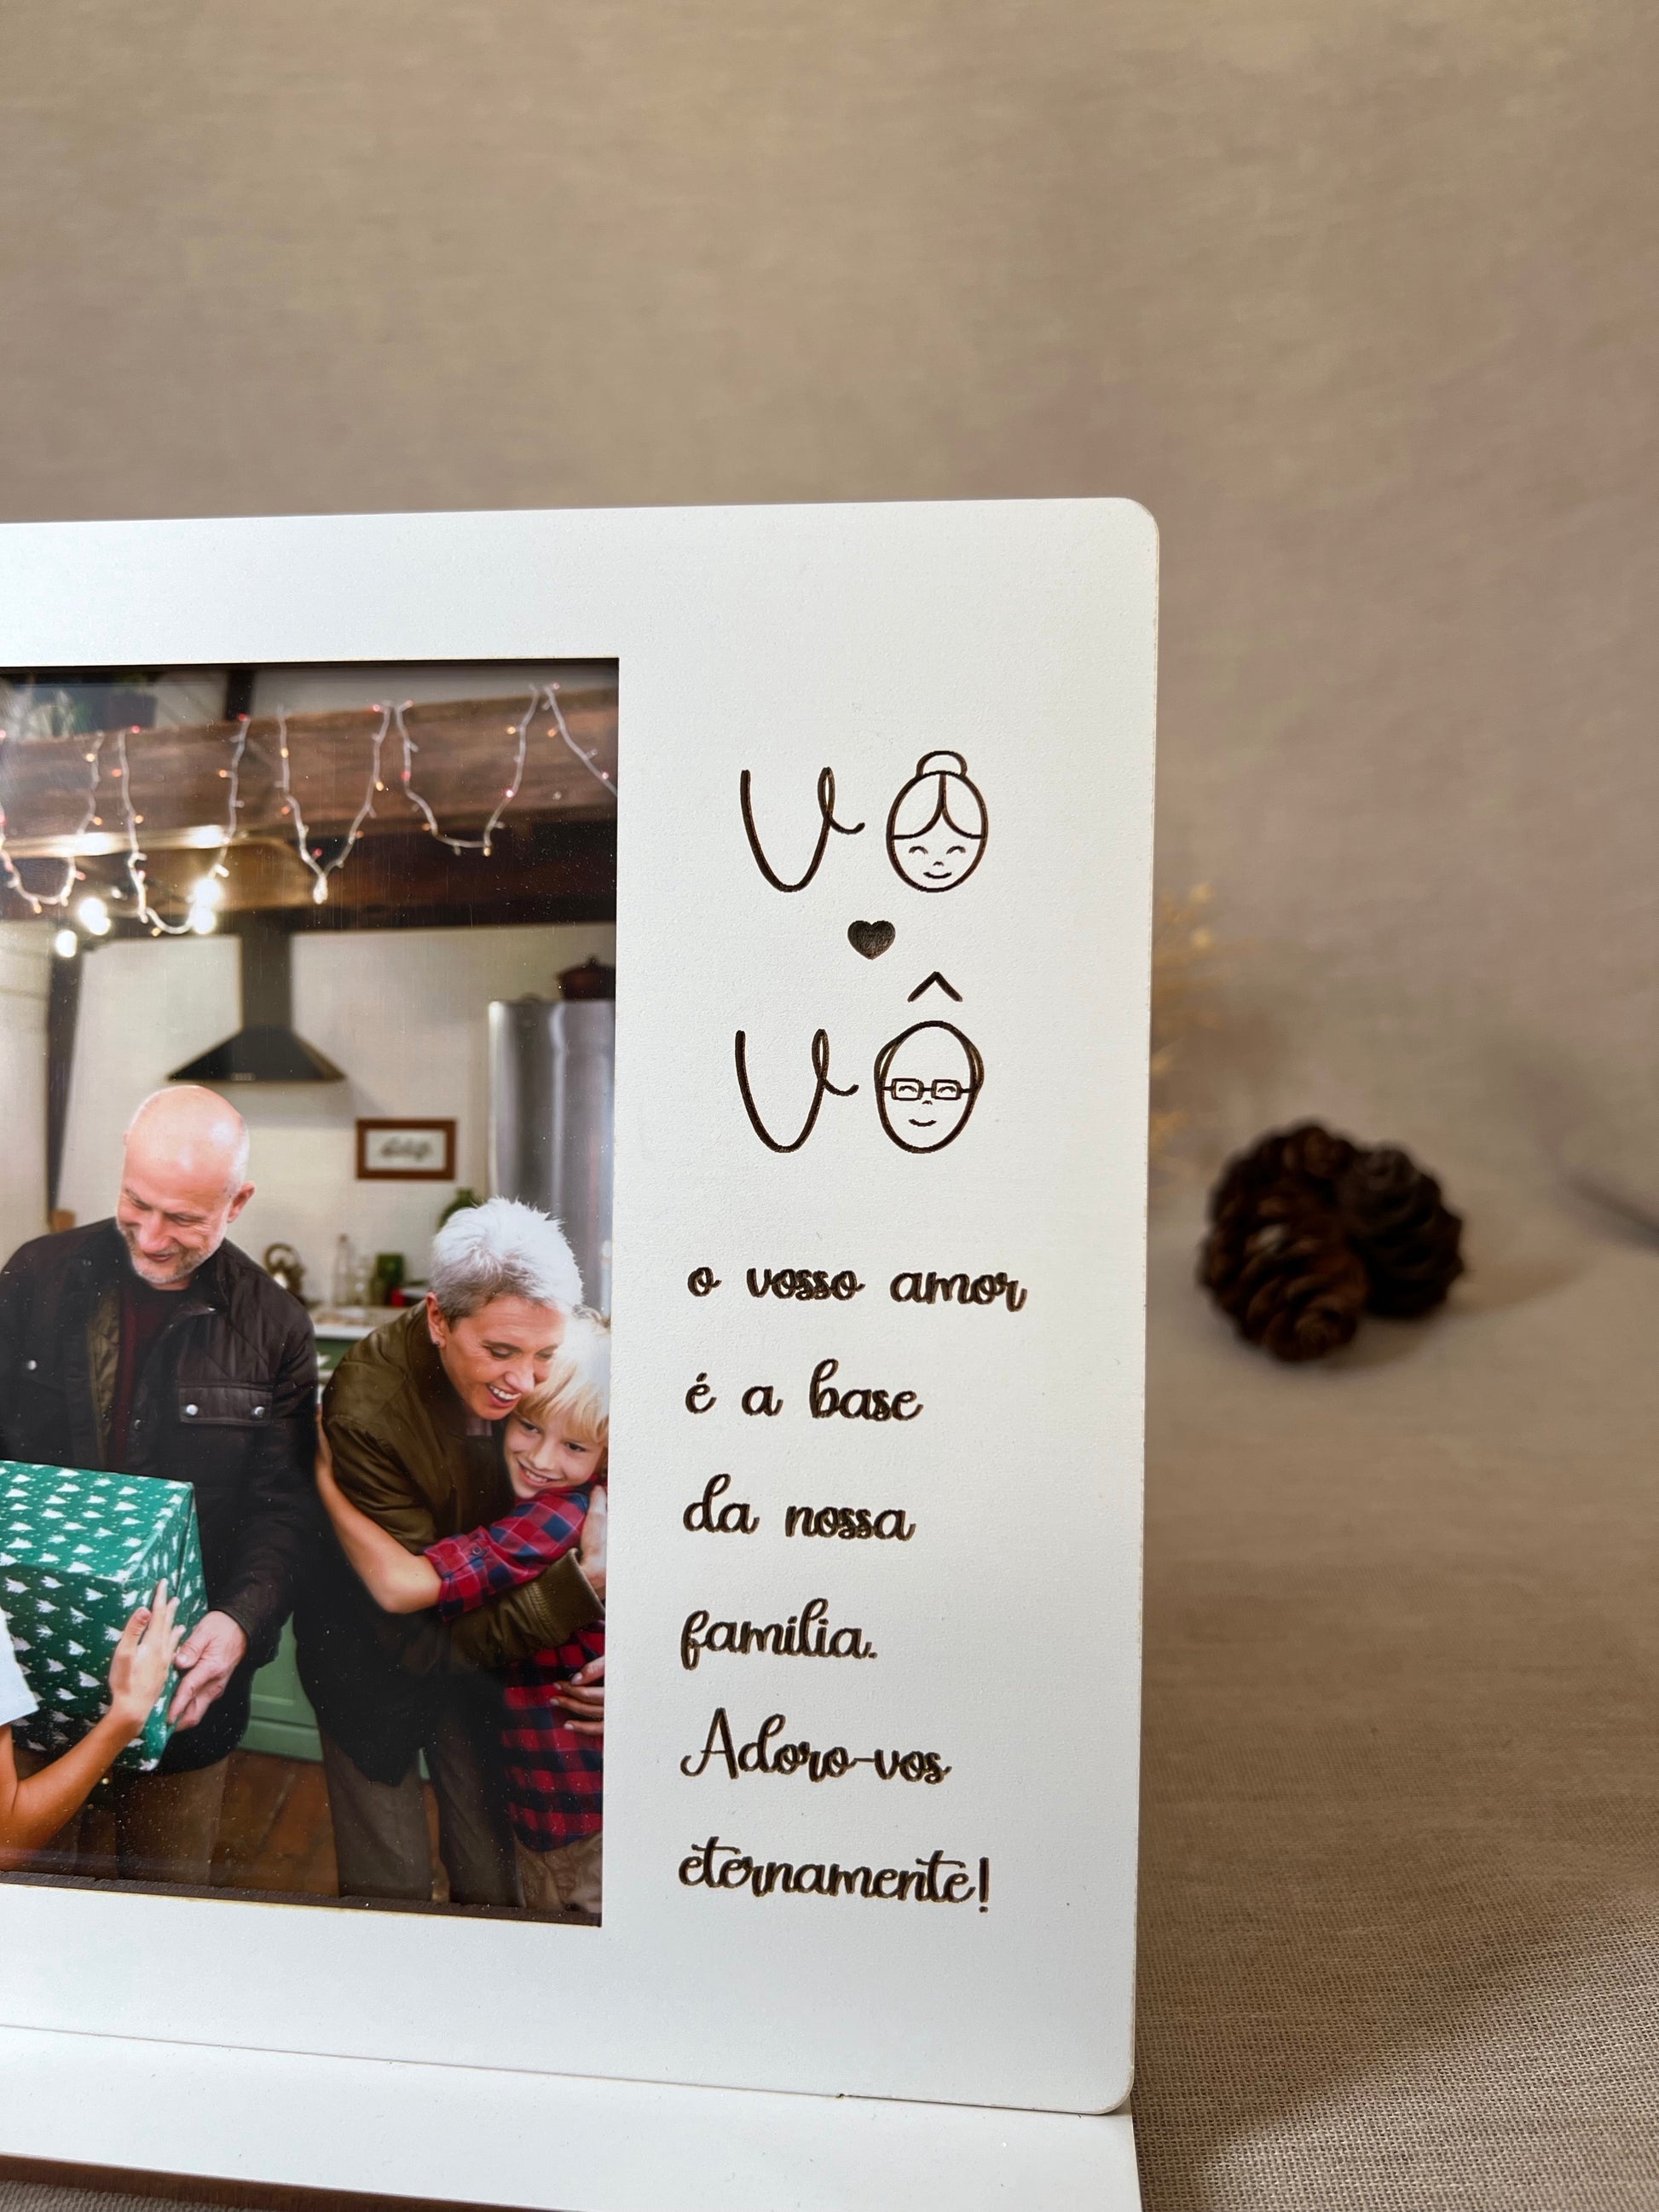 Vo
Vô
o vosso amor
é a base
da nossa
família.
Adoro-vos
eternamente!